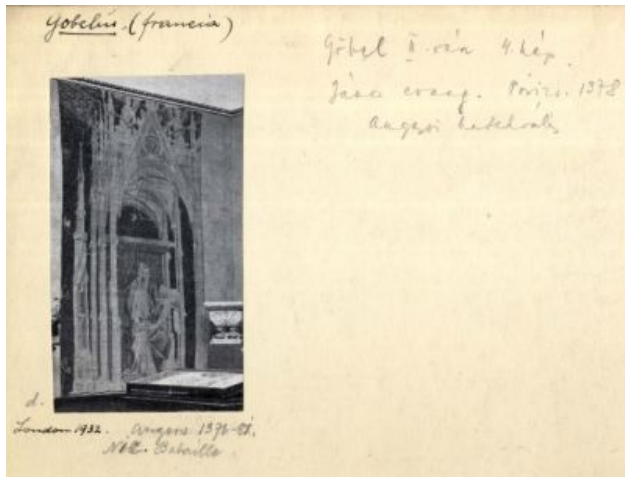 Gobelin. (francia)
Göbel II. rész 4. kép.
János evang. Párizs. 1378
Angersi katedrális
d.
London 1932. Angers 1376-81.
Nic. Bataille